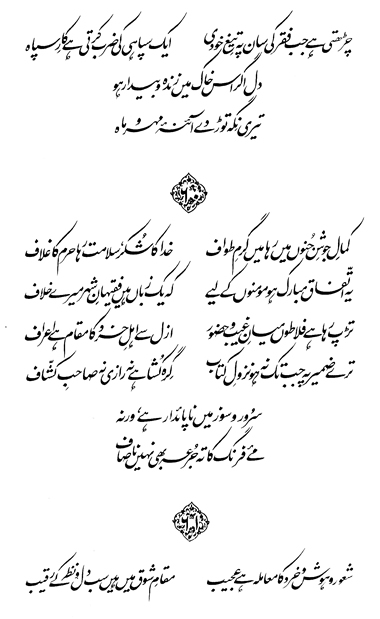 چڑھتی ہے جب فقر کی سان پہ تیغ خودی ایک سپاہی کی ضرب کرتی ہے کارِ سپاہ
دل اگر اس خاک میں زندہ و بیدار ہو
تیری نگہ توڑ دے آئنۂ مہر و ماہ
کمالِ جوشِ جنوں میں رہا میں گرمِ طواف خدا کا شکر سلامت رہا حرم کا غلاف
یہ اتفاق مبارک ہو مومنوں کے لیے کہ یک زباں ہیں فقیہانِ شہر میرے خلاف
تڑپ رہا ہے فلاطوں میانِ غیب و حضور ازل سے اہلِ خرد کا مقام ہے اعراف
ترے ضمیر پہ جب تک نہ ہو نزولِ کتاب گرہ کشا ہے نہ رازی نہ صاحبِ کشّاف
سرور و سوز میں ناپائدار ہے ورنہ
مئے فرنگ کا تہ جرعہ بھی نہیں ناصاف
شعور و ہوش و خرد کا معاملہ ہے عجیب مقامِ شوق میں ہیں سب دل و نظر کے رقیب